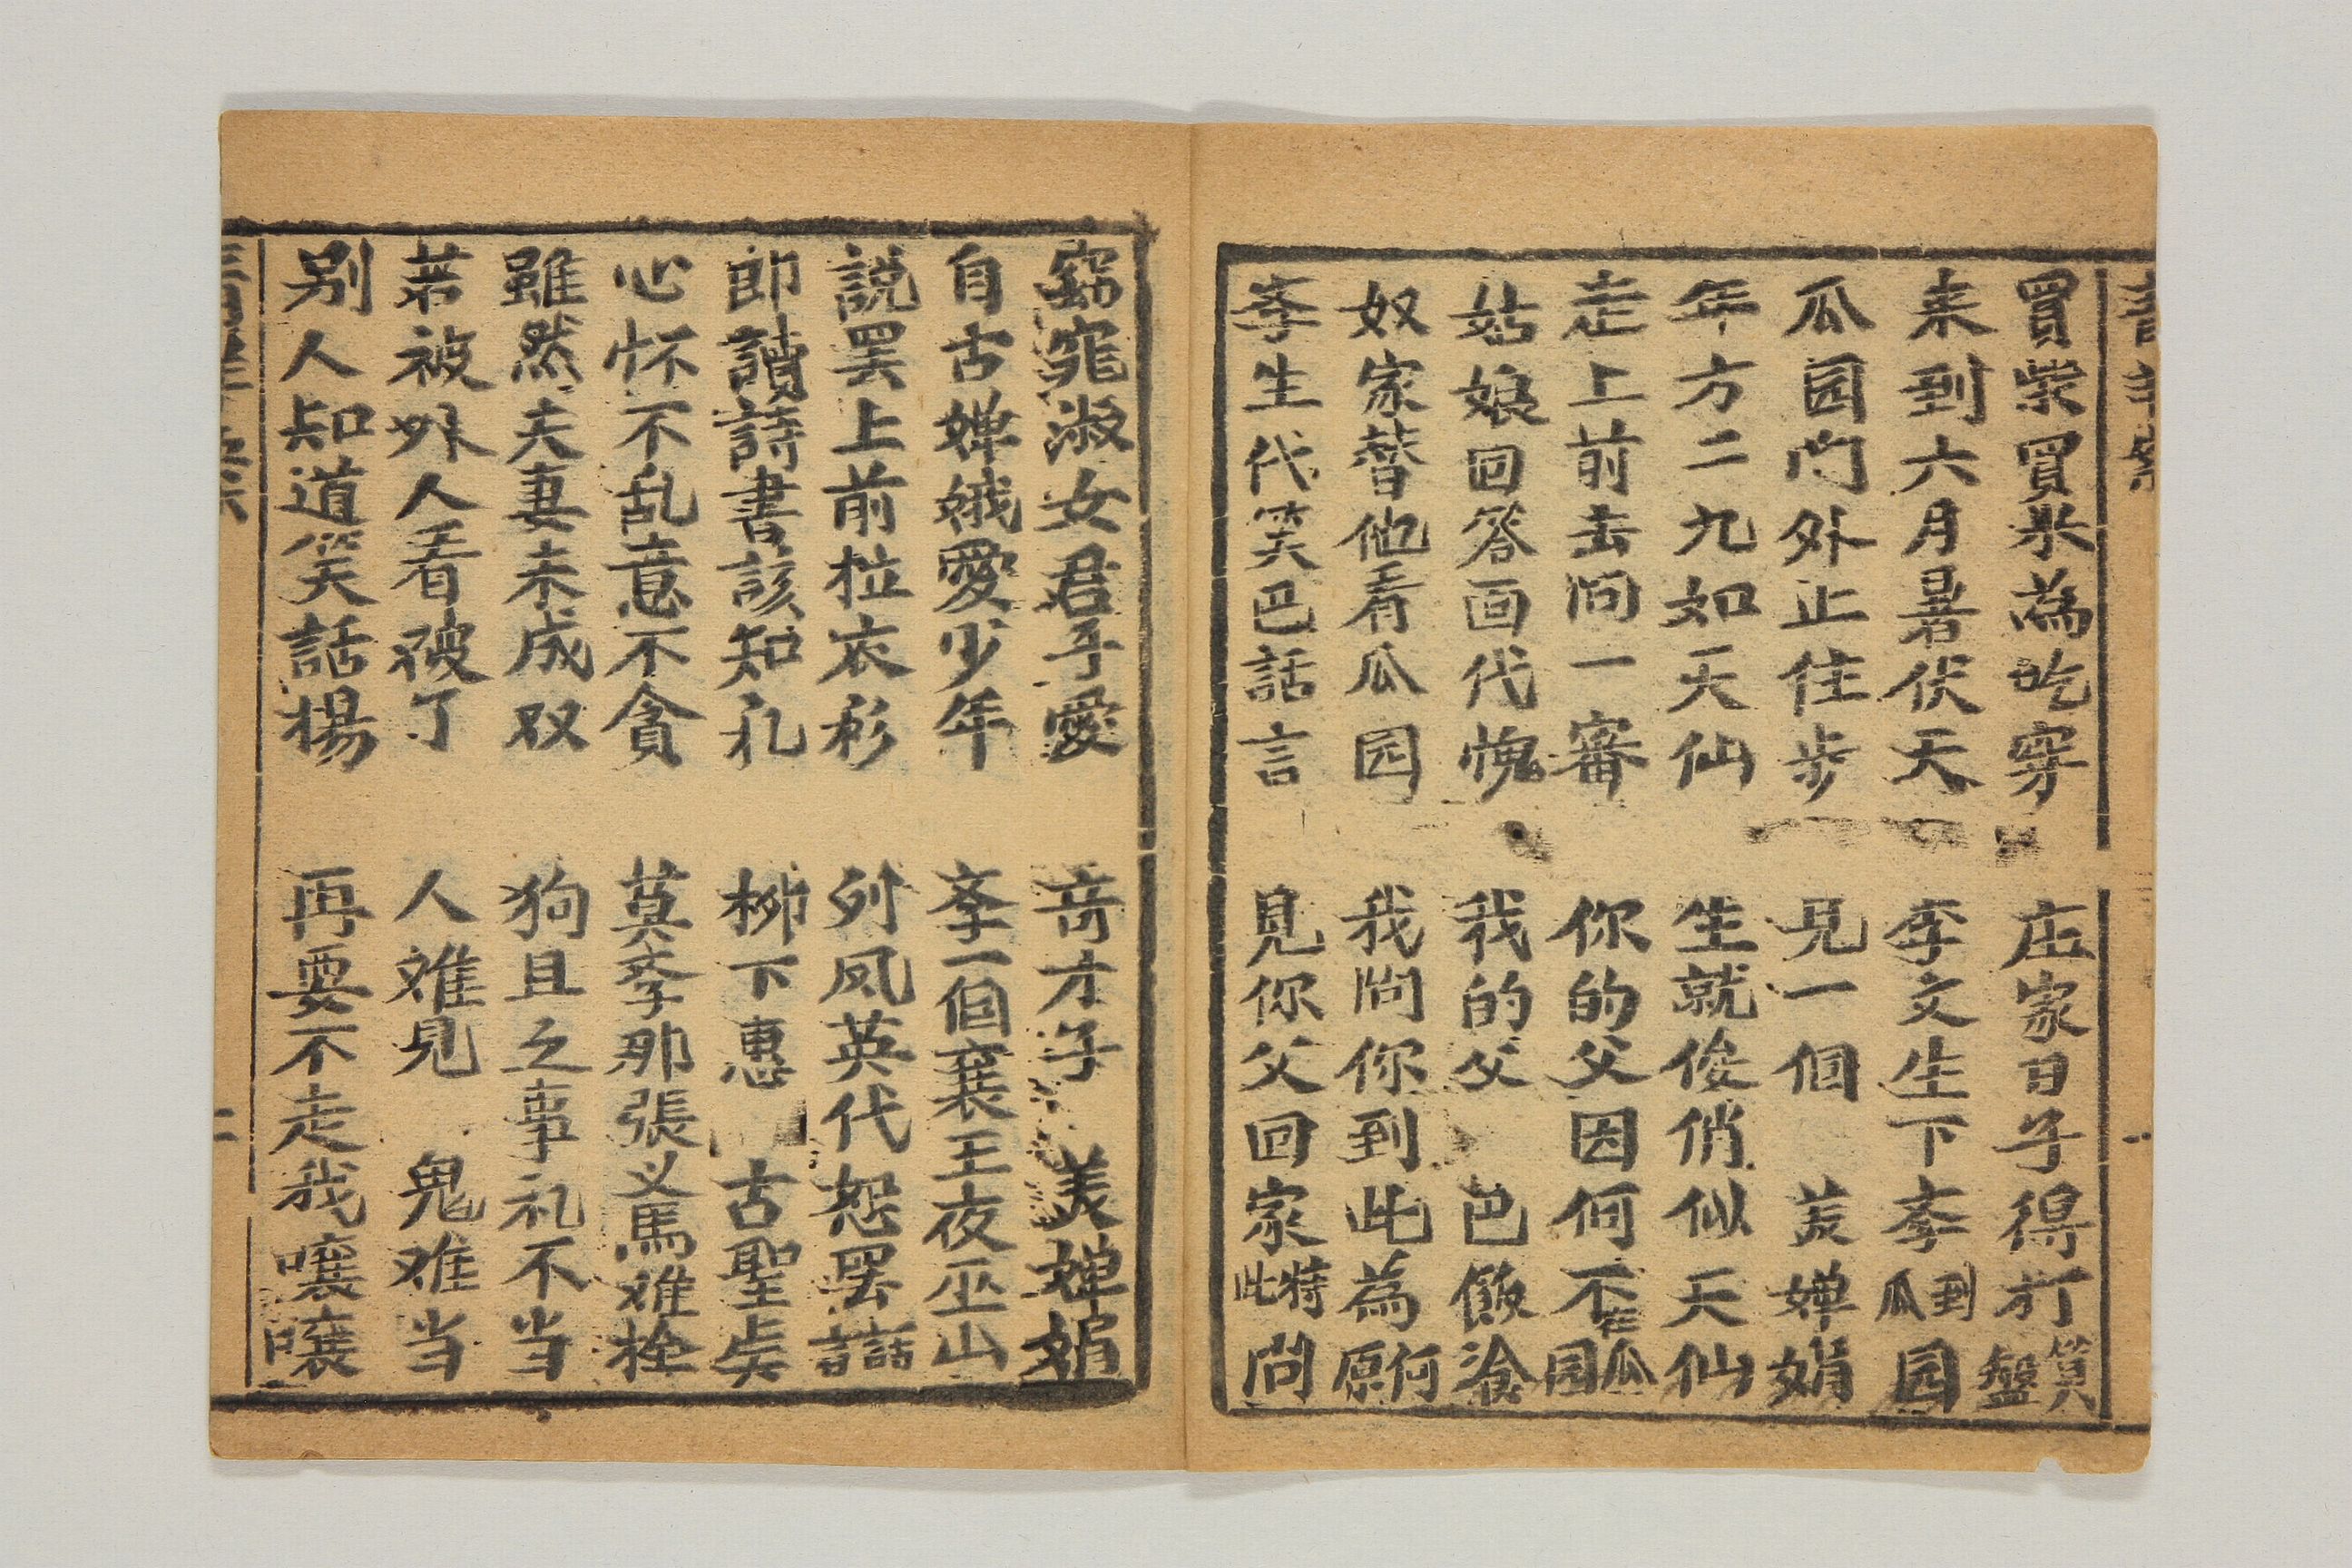 買柴買米為吃穿　庄家日子得打筭盤
来到六月暑伏天　李文生下李到瓜园
瓜园门外止住步　見一個　美婵娟
年方二九如天仙　生就俊俏似天仙
走上前去问一審　你的父因何不在瓜园
姑娘回答面代愧　我的父　巴飯湌
奴家替他看瓜园　我问你到此為何原
李生代笑巴話言　見你父回家特此问
窈窕淑女君子愛　音才子　美婵娟
自古婵娥愛少年　李一個襄王夜巫山
説罢上前拉衣衫　列凤英代怒罢話言
郎讀詩書該知礼　柳下惠　古聖贤
心怀不乱意不貪　莫李那張义馬难拴
雖然夫妻未成双　狗且之事礼不当
若被外人看破了　人难見　鬼难当
别人知道笑話揚　再要不走我嚷嚷
二